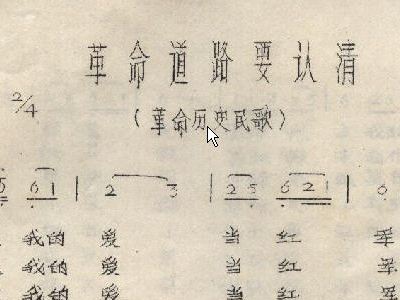 革命道路要认清
2/4
（革命历史民歌）
5 61 | 2 3 | 25 621 | 6
我的 爱 当 红 军
我的 爱 当 红 军
我的 爱 当 红